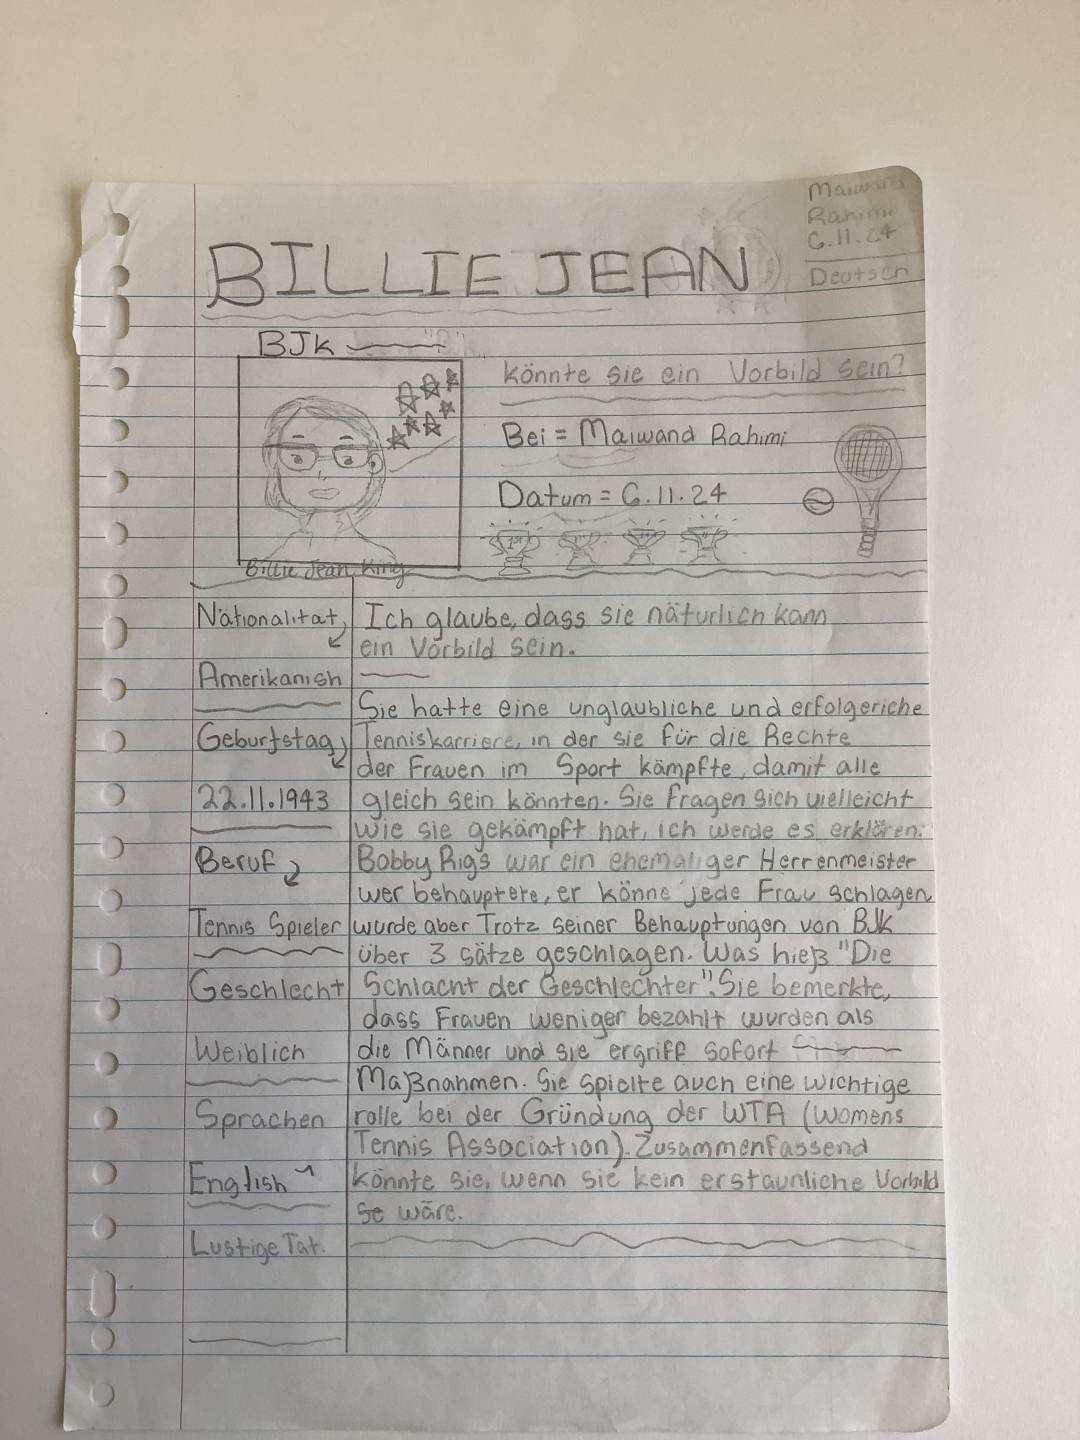 Maiwand
Rahimi
6.11.24
Deutsch
BILLIE JEAN
BJK
könnte sie ein Vorbild sein?
Bei = Maiwand Rahimi
Datum = 6.11.24
1st
Billie Jean King
Nätionalitat
Amerikanish
Geburtstag
22.11.1943
Beruf
Tennis Spieler
Geschlecht
Weiblich
Sprachen
English
Lustige Tat.
Ich glaube, dass sie näturlich kann
ein Vorbild sein.
Sie hatte eine unglaubliche und erfolgeriche
Tenniskarriere, in der sie für die Rechte
der Frauen im Sport kämpfte, damit alle
gleich sein könnten. Sie fragen sich vielleicht
wie sie gekämpft hat, ich werde es erklären.
Bobby Rigs war ein ehemaliger Herrenmeister
wer behauptete, er könne jede Frau schlagen
wurde aber Trotz seiner Behauptungen von BJK
über 3 sätze geschlagen. Was hieß "Die
Schlacht der Geschlechter". Sie bemerkte,
dass Frauen weniger bezahlt wurden als
die Männer und sie ergriff sofort
Maßnahmen. Sie spielte auch eine wichtige
rolle bei der Gründung der WTA (Womens
Tennis Association). Zusammenfassend
könnte sie, wenn sie kein erstaunliche Vorbild
se wäre.